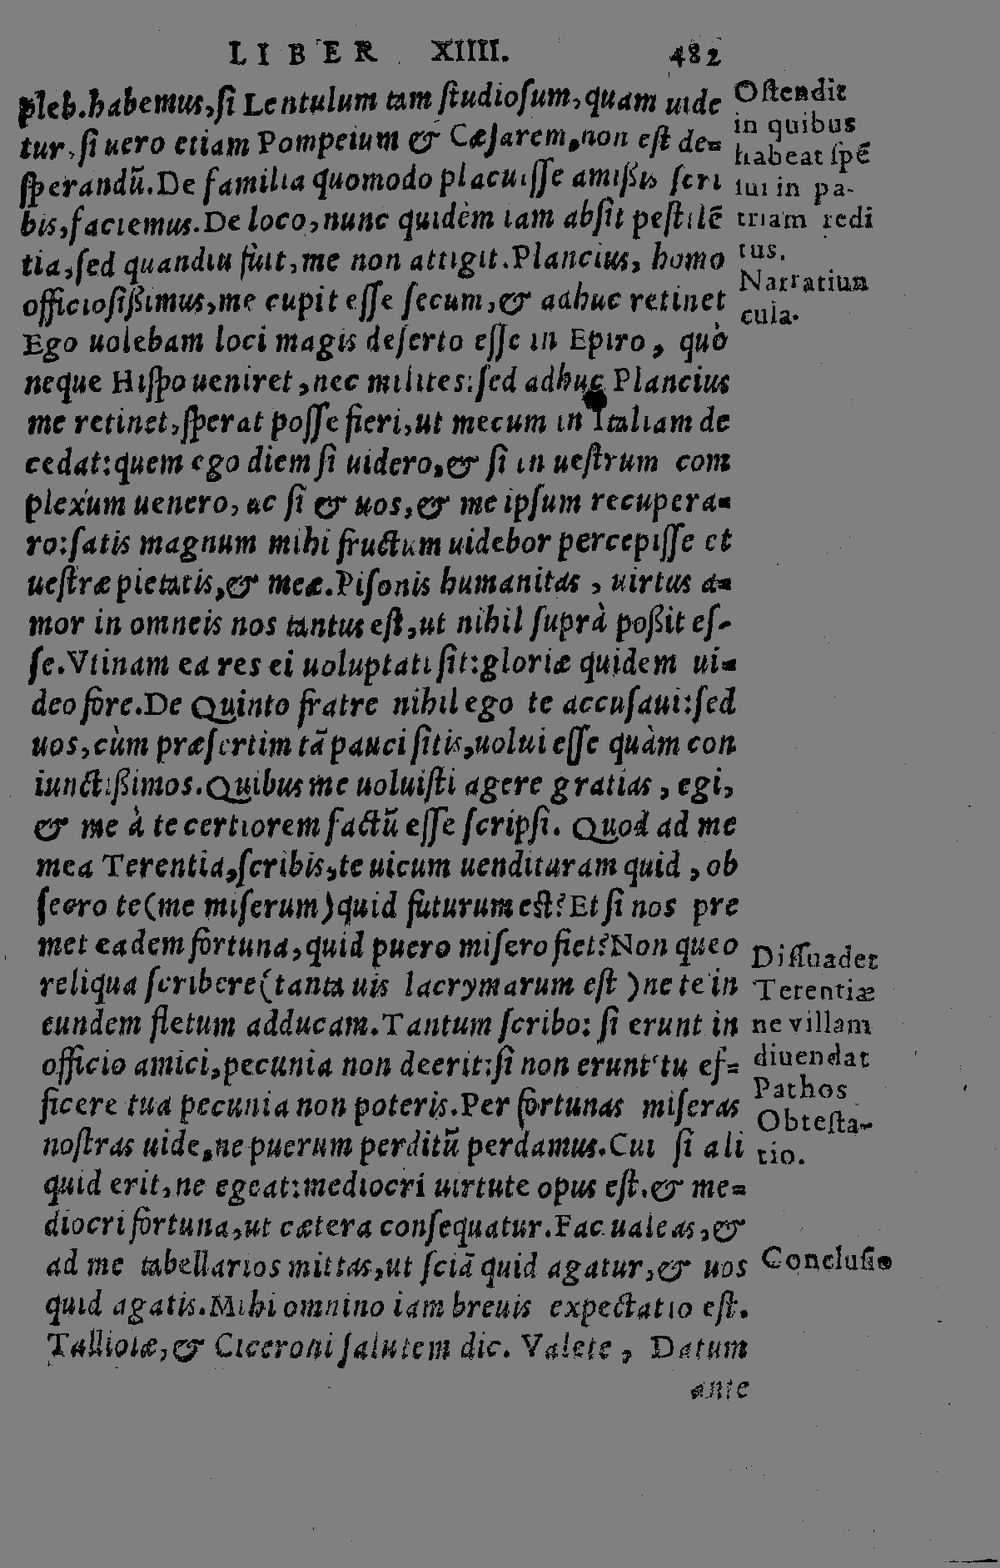 LIBER XIIII. 482
pleb.habemus,ſi Lentulum tam ſtudioſum,quam uide
tur,ſi uero etiam Pompeium & Cæſarem,non eſt de=
ſperandũ.De familia quomodo placuiſſe amißis ſcri
bis,faciemus.De loco,nunc quidèm iam abſit peſtilẽ
tia,ſed quandiu fuit,me non attigit.Plancius, homo
officioſißimus,me cupit eſſe ſecum,& adhuc retinet
Ego uolebam loci magis deſerto eſſe in Epiro, quò
neque Hiſpo ueniret,nec milites:ſed adhuc Plancius
me retinet,ſperat poſſe fieri,ut mecum in Italiam de
cedat:quem ego diem ſi uidero,& ſi in ueſtrum com
plexum uenero, ac ſi & uos,& me ipſum recupera=
ro:ſatis magnum mihi fructum uidebor percepiſſe et
ueſtræ pietatis,& meæ.Piſonis humanitas, uirtus a=
mor in omneis nos tantus eſt,ut nihil ſuprà poßit eſ-
ſe.Vtinam ea res ei uoluptati ſit:gloriæ quidem ui=
deo fore.De Quinto fratre nihil ego te accuſaui:ſed
uos,cùm præſertim tã pauci ſitis,uolui eſſe quàm con
iunctißimos.Quibus me uoluiſti agere gratias, egi,
& me à te certiorem factũ eſſe ſcripſi. Quod ad me
mea Terentia,ſcribis,te uicum uendituram quid, ob
ſecro te(me miſerum)quid futurum eſt? Et ſi nos pre
met eadem fortuna,quid puero miſero fiet? Non queo
reliqua ſcribere(tanta uis lacrymarum eſt)ne te in
eundem fletum adducam.Tantum ſcribo: ſi erunt in
officio amici,pecunia non deerit:ſi non erunt tu ef=
ficere tua pecunia non poteris.Per fortunas miſeras
noſtras uide,ne puerum perditũ perdamus.Cui ſi ali
quid erit,ne egeat:mediocri uirtute opus eſt.& me=
diocri fortuna,ut cætera conſequatur.Fac ualeas,&
ad me tabellarios mittas,ut ſciã quid agatur,& uos
quid agatis.Mihi omnino iam breuis expectatio eſt.
Talliolæ,& Ciceroni ſalutem dic. Valete, Datum
ante
Oſtendit
in quibus
habeat ſpẽ
ſui in pa-
triam redi
tus.
Narratiun
cula.
Diſſuadet
Terentiæ
ne villam
diuendat
Pathos
Obteſta-
tio.
Concluſio